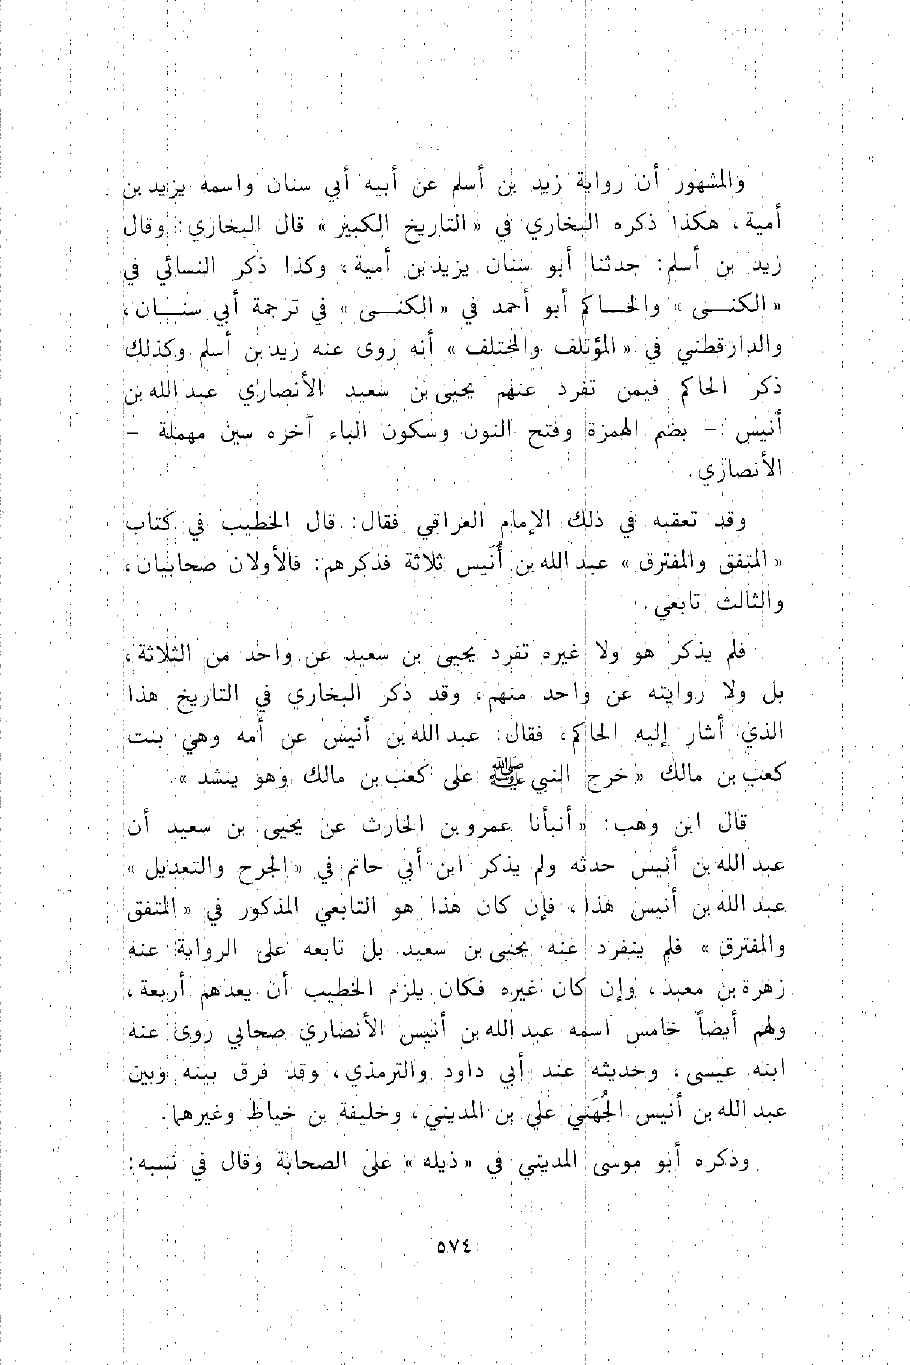 والمشهور أن رواية زيد بن أسلم عن أبيه أبي سنان واسمه يزيد بن
أمية، هكذا ذكره البخاري في « التاريخ الكبير » قال البخاري: وقال
زيد بن أسلم: حدثنا أبو سنان يزيد بن أمية، وكذا ذكر النسائي في
« الكنى » والحاكم أبو أحمد في « الكنى » في ترجمة أبي سنان،
والدارقطني في « المؤتلف والمختلف » أنه روى عنه زيد بن أسلم. وكذلك
ذكر الحاكم فيمن تفرد عنهم يحيى بن سعيد الأنصاري عبد الله بن
أنيس: - بضم الهمزة وفتح النون وسكون الياء آخره سين مهملة -
الأنصاري.
وقد تعقبه في ذلك الإمام العراقي فقال: قال الخطيب في كتاب
« المتفق والمفترق » عبد الله بن أُنَيس ثلاثة فذكرهم: فالأولان صحابيان،
والثالث تابعي.
فلم يذكر هو ولا غيره تفرد يحيى بن سعيد عن واحد من الثلاثة،
بل ولا روايته عن واحد منهم، وقد ذكر البخاري في التاريخ هذا
الذي أشار إليه الحاكم، فقال: عبد الله بن أنيس عن أمه وهي بنت
كعب بن مالك « خرج النبي ﷺ على كعب بن مالك وهو ينشد ».
قال ابن وهب: « أنبأنا عمرو بن الحارث عن يحيى بن سعيد أن
عبد الله بن أنيس حدثه ولم يذكر ابن أبي حاتم في « الجرح والتعديل »
عبد الله بن أنيس هذا، فإن كان هذا هو التابعي المذكور في « المتفق
والمفترق » فلم ينفرد عنه يحيى بن سعيد. بل تابعه على الرواية عنه
زهرة بن معبد، وإن كان غيره فكان يلزم الخطيب أن يعدهم أربعة،
ولهم أيضاً خامس اسمه عبد الله بن أنيس الأنصاري صحابي روى عنه
ابنه عيسى، وحديثه عند أبي داود والترمذي، وقد فرق بينه وبين
عبد الله بن أنيس الجُهَني علي بن المديني، وخليفة بن خياط وغيرهما.
وذكره أبو موسى المديني في « ذيله » على الصحابة وقال في نسبه:
٥٧٤